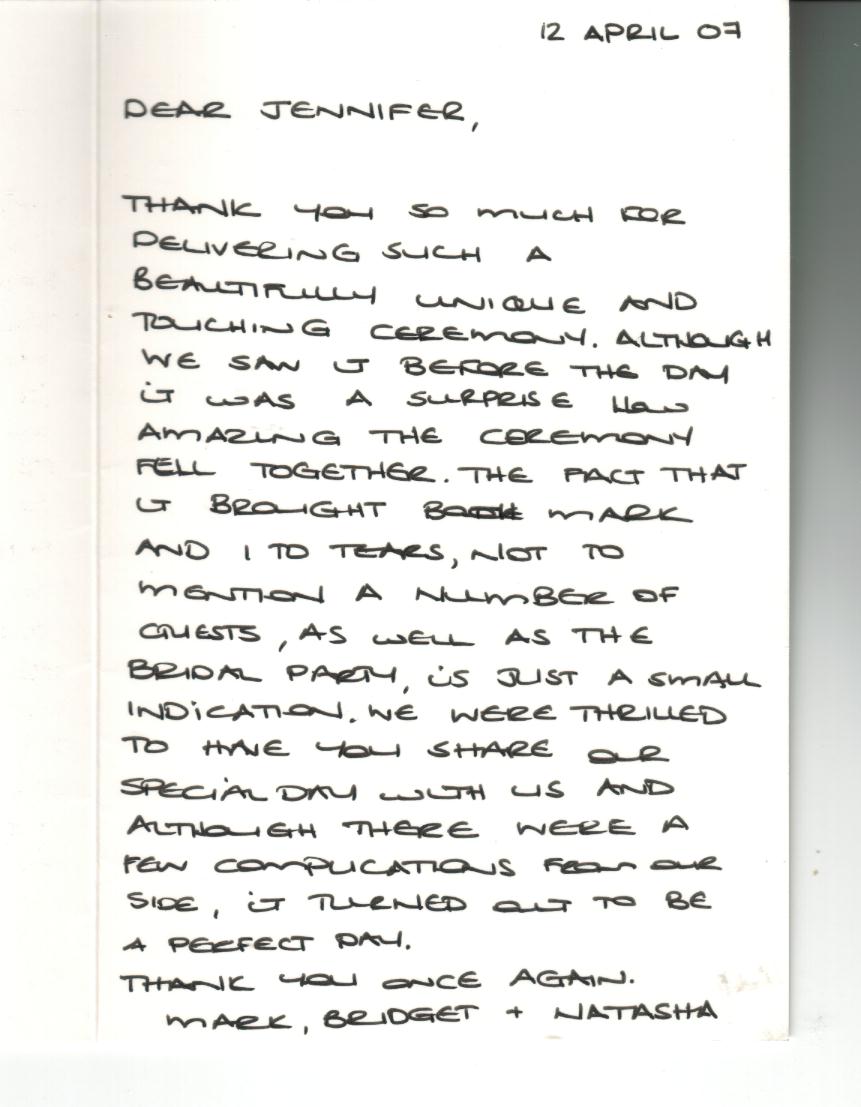 12 APRIL 07
DEAR JENNIFER,
THANK YOU SO MUCH FOR
DELIVERING SUCH A
BEAUTIFULLY UNIQUE AND
TOUCHING CEREMONY. ALTHOUGH
WE SAW IT BEFORE THE DAY
IT WAS A SURPRISE HOW
AMAZING THE CEREMONY
FELL TOGETHER. THE FACT THAT
IT BROUGHT BOTH MARK
AND I TO TEARS, NOT TO
MENTION A NUMBER OF
GUESTS, AS WELL AS THE
BRIDAL PARTY, IS JUST A SMALL
INDICATION. WE WERE THRILLED
TO HAVE YOU SHARE OUR
SPECIAL DAY WITH US AND
ALTHOUGH THERE WERE A
FEW COMPLICATIONS FROM OUR
SIDE, IT TURNED OUT TO BE
A PERFECT DAY.
THANK YOU ONCE AGAIN.
MARK, BRIDGET + NATASHA